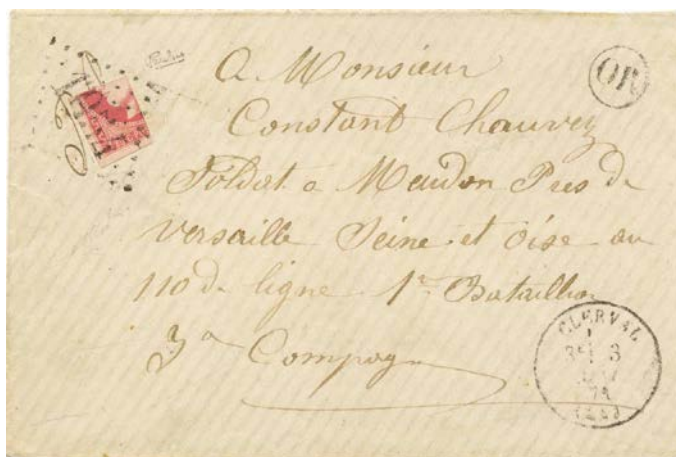 A Monsieur
OR
Constant Chauvey
Soldat a Meudon Pres de
versaille Seine et Oise au
110 de ligne 1r Bataillion
3e Compag
CLERVAL
3